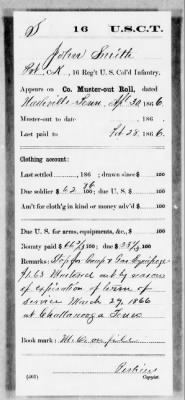 S | 16 | U.S.C.T.
John Smith
Pvt, , 16 Reg't U.S. Col'd Infantry.
Appears on Co. Muster-out Roll, dated
Nashville Tenn, Apl 30, 1866.
Muster-out to date , 186 .
Last paid to Feb 28, 1866.
Clothing account:
Last settled , 186 ; drawn since $ 100
Due soldier $ 100; due U. S. $ 100
Am't for cloth'g in kind or money adv'd $ 100
Due U. S. for arms, equipments, &c., $ 100
Bounty paid $ 100; due $ 100
Remarks: Stop for Camp & Gar Equipage
$ Mustered out by reason
of expiration of term of
service March 27, 1866
at Chattanooga
Tenn
Book mark:
Perkins
(361) Copyist.